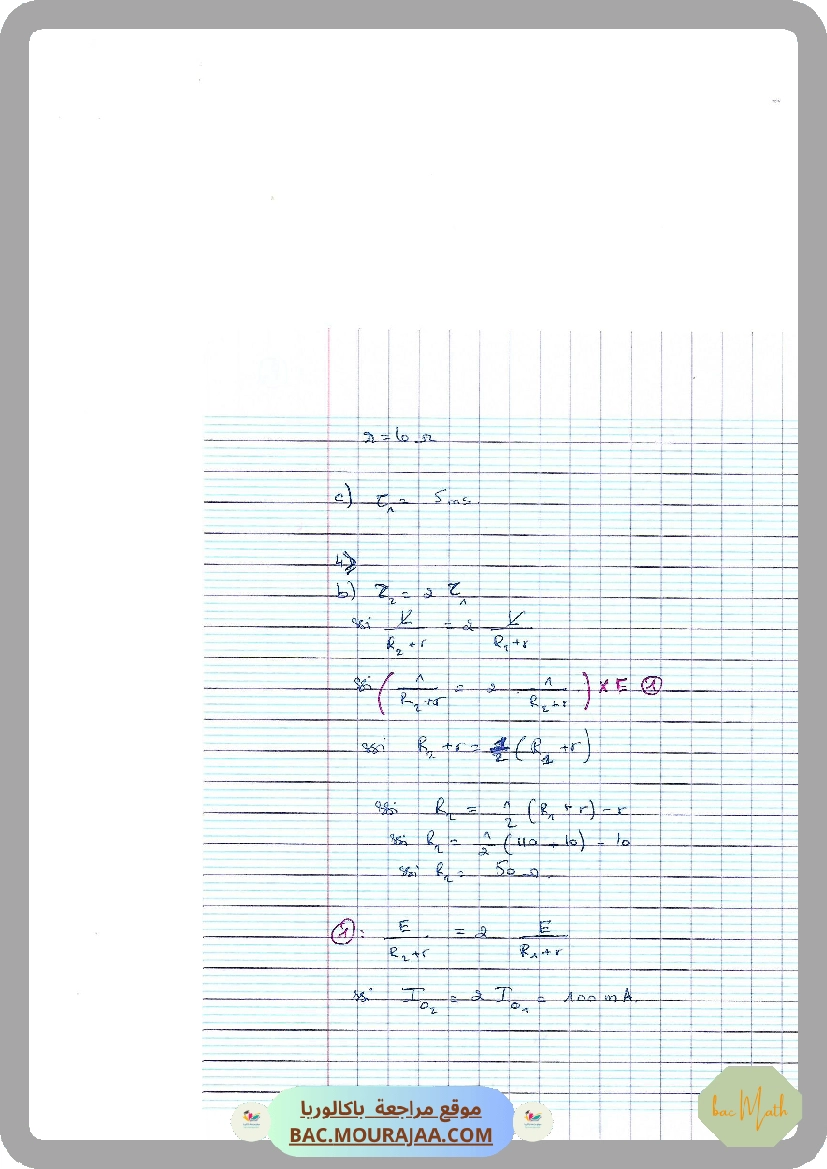 r = 10 Ω
c) τ₁ = 5 ms.
4)
b) τ₂ = 2 τ₁
ssi L/(R₂ + r) = 2 L/(R₁ + r)
ssi ( 1/(R₂ + r) = 2 1/(R₂ + r) ) × E ①
ssi R₂ + r = 1/2 (R₁ + r)
ssi R₂ = 1/2 (R₁ + r) - r
ssi R₂ = 1/2 (110 + 10) - 10
ssi R₂ = 50 Ω.
①: E/(R₂ + r) = 2 E/(R₁ + r)
ssi I₀₂ = 2 I₀₁ = 100 mA.
موقع مراجعة باكالوريا
BAC.MOURAJAA.COM
bac Math